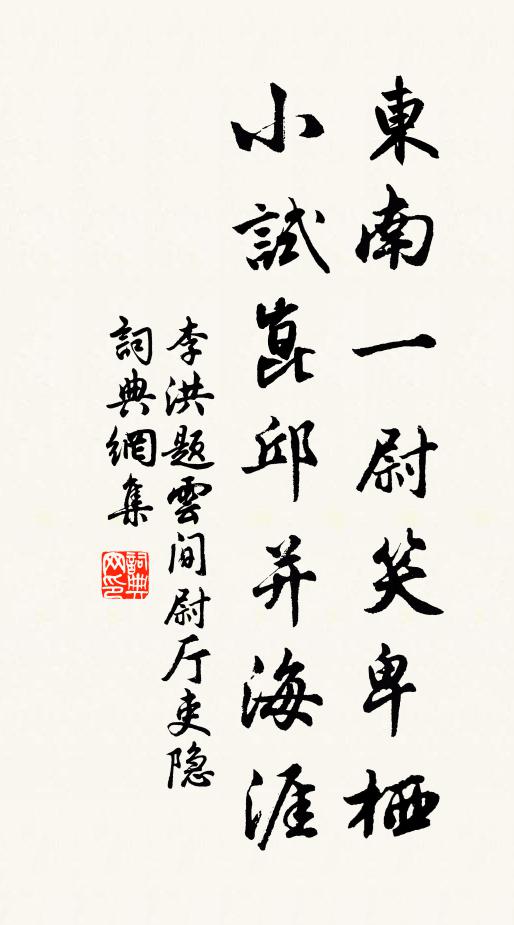 東南一尉笑卑栖
小試崑邱并海涯
李洪題雲间尉厅吏隐
詞典網集
詞典網印